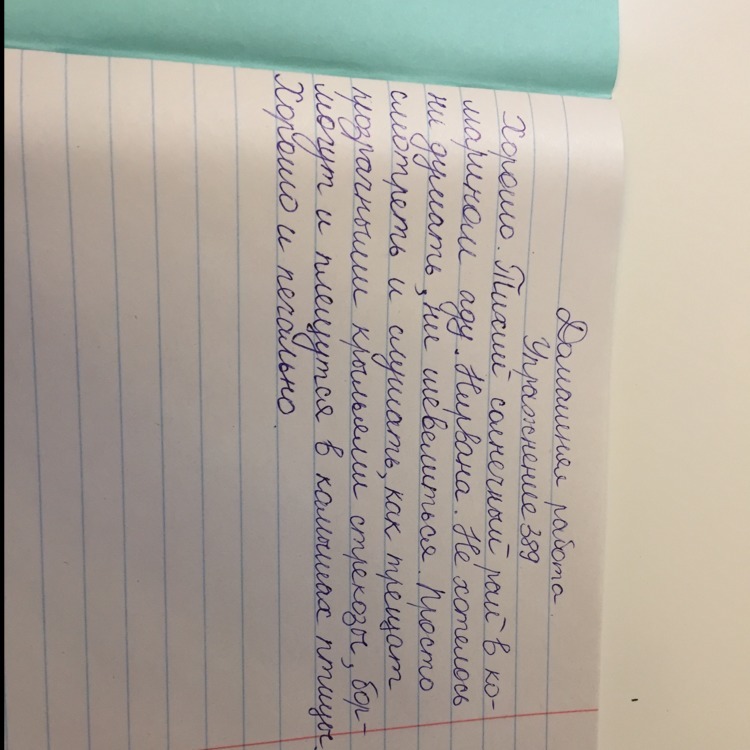 Домашняя работа.
Упражнение 389
Хорошо. Тихий солнечный рай в ко-
марином аду. Нирвана. Не хотелось
ни думать, ни шевелиться. Просто
смотреть и слушать, как трещат
прозрачными крыльями стрекозы, бор-
мочут и плещутся в камышах птицы.
Хорошо и печально